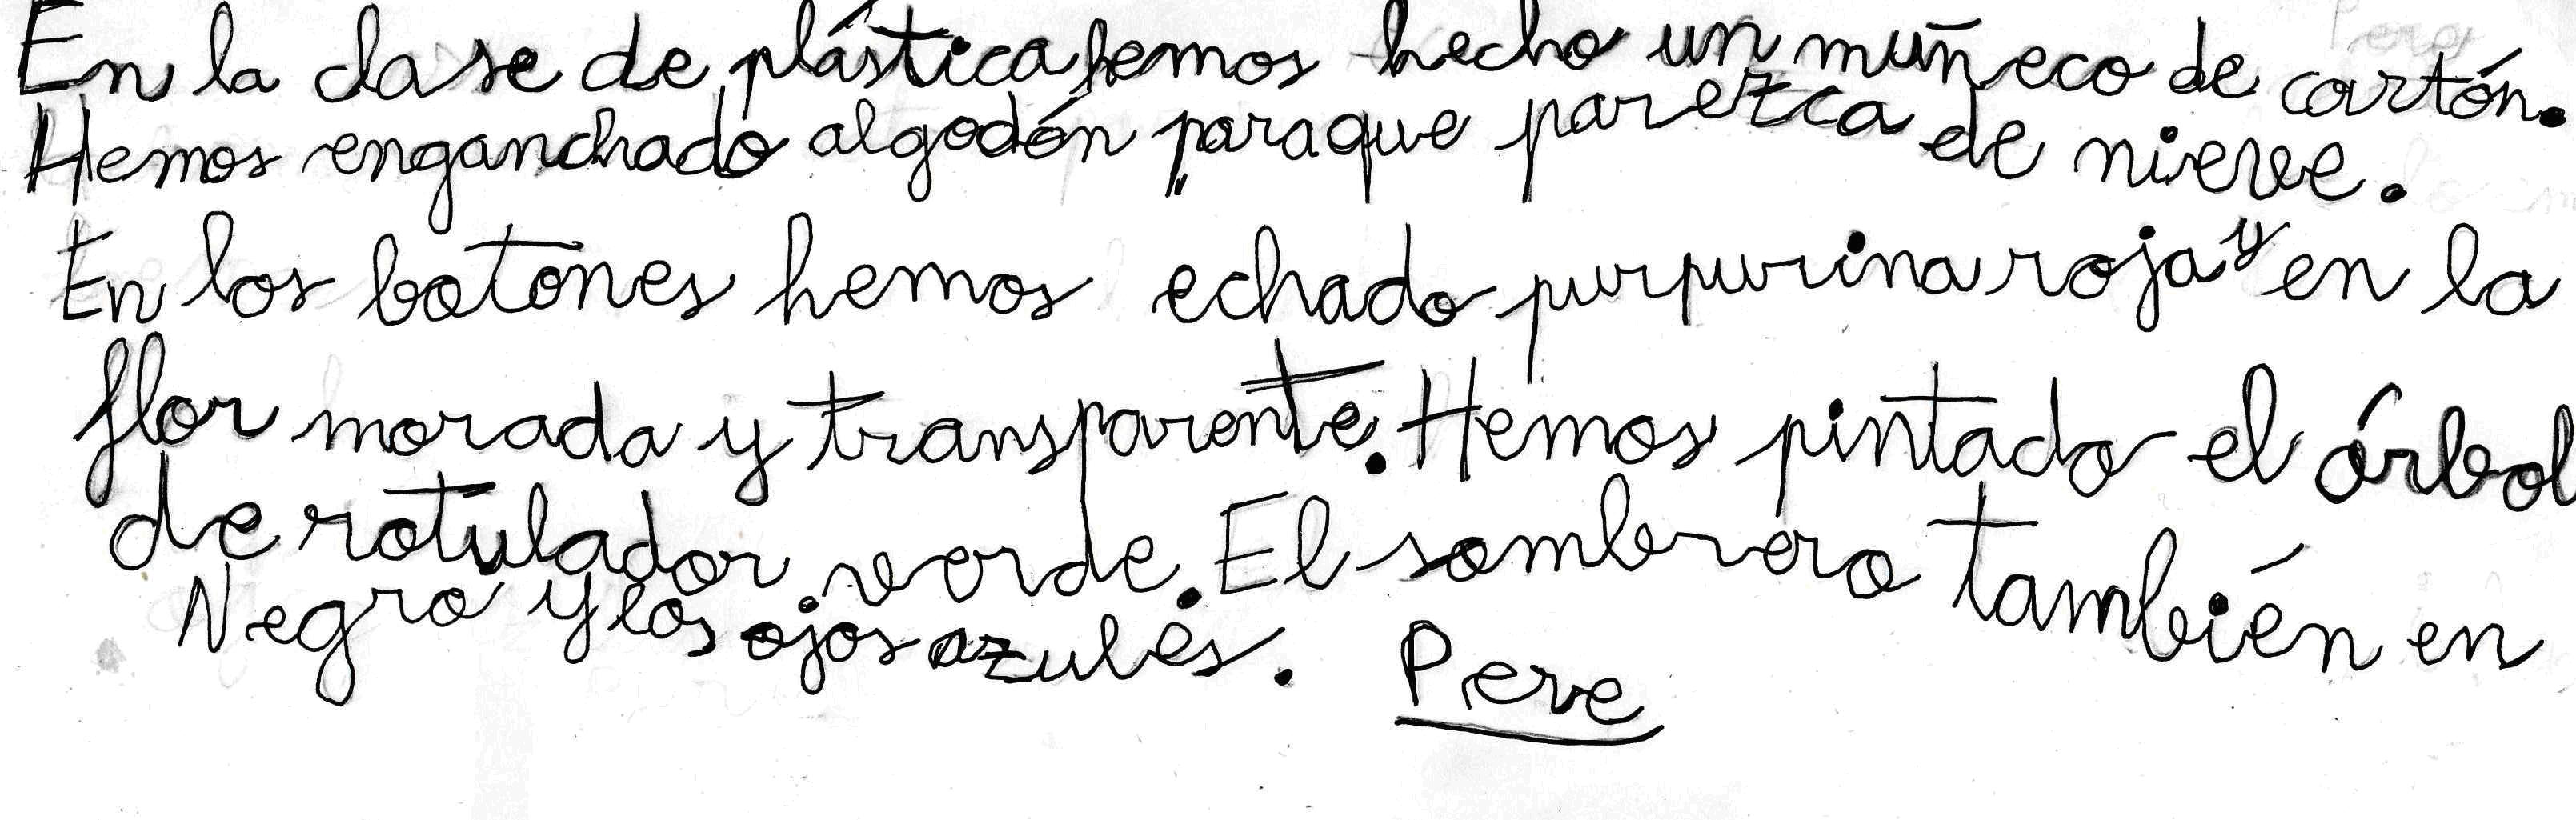 En la clase de plástica hemos hecho un muñeco de cartón.
Hemos enganchado algodón para que parezca de nieve.
En los botones hemos echado purpurina roja y en la
flor morada y transparente. Hemos pintado el árbol
de rotulador verde. El sombrero también en
Negro y los ojos azules. Pere